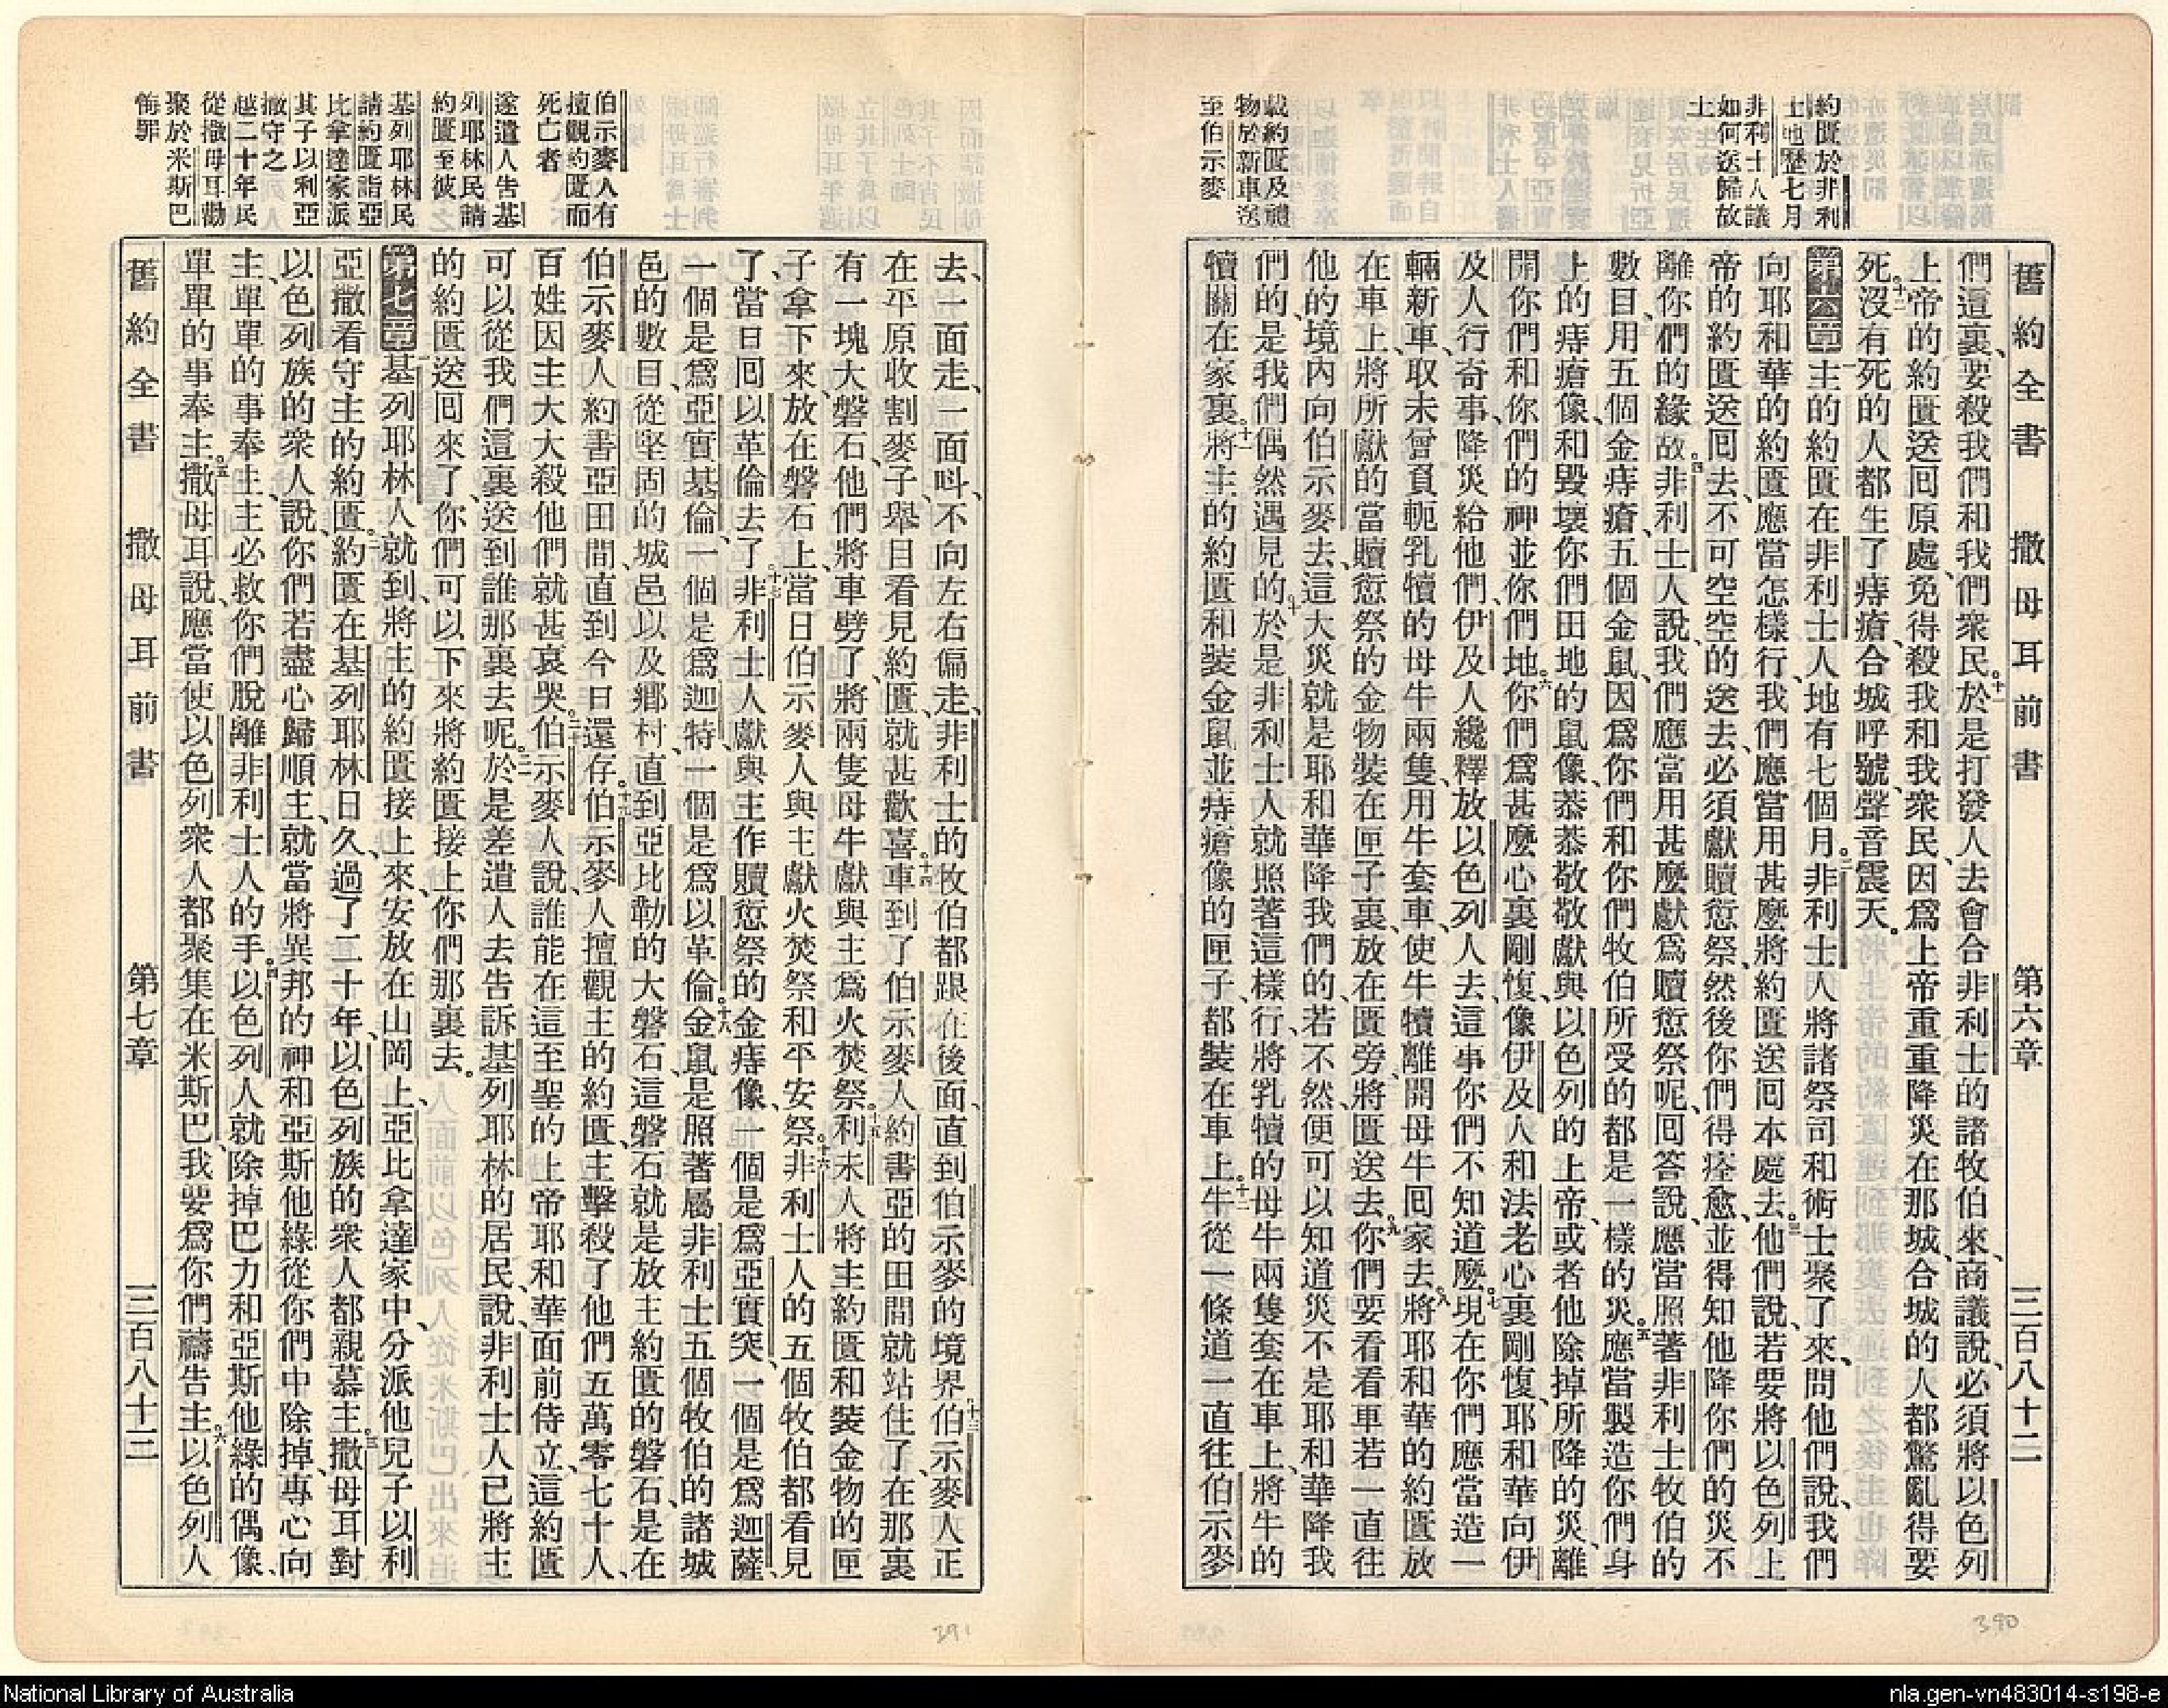 舊約全書 撒母耳前書 第六章 三百八十二
約匱於非利
士地歷七月
非利士人議
如何送歸故
土
載約匱及禮
物於新車送
至伯示麥
們這裏、要殺我們和我們衆民。十一於是打發人去會合非利士的諸牧伯來、商議說、必須將以色列
上帝的約匱送回原處、免得殺我和我衆民、因爲上帝重重降災在那城、合城的人都驚亂得要
死。十二沒有死的人都生了痔瘡、合城呼號、聲音震天。
第六章一主的約匱在非利士人地有七個月。二非利士人將諸祭司和術士聚了來、問他們說、我們
向耶和華的約匱應當怎樣行、我們應當用甚麼將約匱送回本處去。三他們說、若要將以色列上
帝的約匱送回去、不可空空的送去、必須獻贖愆祭、然後你們得痊愈、並得知他降你們的災不
離你們的緣故。四非利士人說、我們應當用甚麼獻爲贖愆祭呢、回答說、應當照著非利士牧伯的
數目、用五個金痔瘡、五個金鼠、因爲你們和你們牧伯所受的都是一樣的災。五應當製造你們身
上的痔瘡像、和毀壞你們田地的鼠像、恭恭敬敬獻與以色列的上帝、或者他除掉所降的災、離
開你們和你們的神並你們地。六你們爲甚麼心裏剛愎、像伊及人和法老心裏剛愎、耶和華向伊
及人行奇事、降災給他們、伊及人纔釋放以色列人去、這事你們不知道麼。七現在你們應當造一
輛新車、取未曾負軛乳犢的母牛兩隻、用牛套車、使牛犢離開母牛回家去。八將耶和華的約匱放
在車上、將所獻的當贖愆祭的金物裝在匣子裏、放在匱旁、將匱送去。九你們要看看車若一直往
他的境內向伯示麥去、這大災就是耶和華降我們的、若不然、便可以知道災不是耶和華降我
們的、是我們偶然遇見的。十於是非利士人就照著這樣行、將乳犢的母牛兩隻套在車上、將牛的
犢關在家裏。十一將主的約匱和裝金鼠並痔瘡像的匣子、都裝在車上。十二牛從一條道一直往伯示麥
伯示麥人有
擅觀約匱而
死亡者
遂遣人告基
列耶林民請
約匱至彼
基列耶林民
請約匱詣亞
比拿達家派
其子以利亞
撒守之
越二十年民
從撒母耳勸
聚於米斯巴
悔罪
去、一面走、一面呌、不向左右偏走、非利士的牧伯都跟在後面、直到伯示麥的境界。十三伯示麥人正
在平原收割麥子、舉目看見約匱、就甚歡喜。十四車到了伯示麥人約書亞的田間就站住了、在那裏
有一塊大磐石、他們將車劈了、將兩隻母牛獻與主爲火焚祭。十五利未人將主約匱和裝金物的匣
子拿下來、放在磐石上、當日伯示麥人與主獻火焚祭和平安祭。十六非利士人的五個牧伯都看見
了、當日回以革倫去了。十七非利士人獻與主作贖愆祭的金痔像、一個是爲亞實突、一個是爲迦薩、
一個是爲亞實基倫、一個是爲迦特、一個是爲以革倫。十八金鼠是照著屬非利士五個牧伯的諸城
邑的數目、從堅固的城邑以及鄉村、直到亞比勒的大磐石、這磐石就是放主約匱的磐石、是在
伯示麥人約書亞田間、直到今日還存。十九伯示麥人擅觀主的約匱、主擊殺了他們五萬零七十人、
百姓因主大大殺他們、就甚哀哭。二十伯示麥人說、誰能在這至聖的上帝耶和華面前侍立、這約匱
可以從我們這裏送到誰那裏去呢。二一於是差遣人去告訴基列耶林的居民、說、非利士人已將主
的約匱送回來了、你們可以下來將約匱接上你們那裏去。
第七章一基列耶林人就到、將主的約匱接上來、安放在山岡上、亞比拿達家中、分派他兒子以利
亞撒看守主的約匱。二約匱在基列耶林日久、過了二十年、以色列族的衆人都親慕主。三撒母耳對
以色列族的衆人說、你們若盡心歸順主、就當將異邦的神和亞斯他綠從你們中除掉、專心向
主、單單的事奉主、主必救你們脫離非利士人的手。四以色列人就除掉巴力和亞斯他綠的偶像、
單單的事奉主。五撒母耳說、應當使以色列衆人都聚集在米斯巴、我要爲你們禱告主。六以色列人
舊約全書 撒母耳前書 第七章 三百八十三
390
391
National Library of Australia
nla.gen-vn483014-s198-e